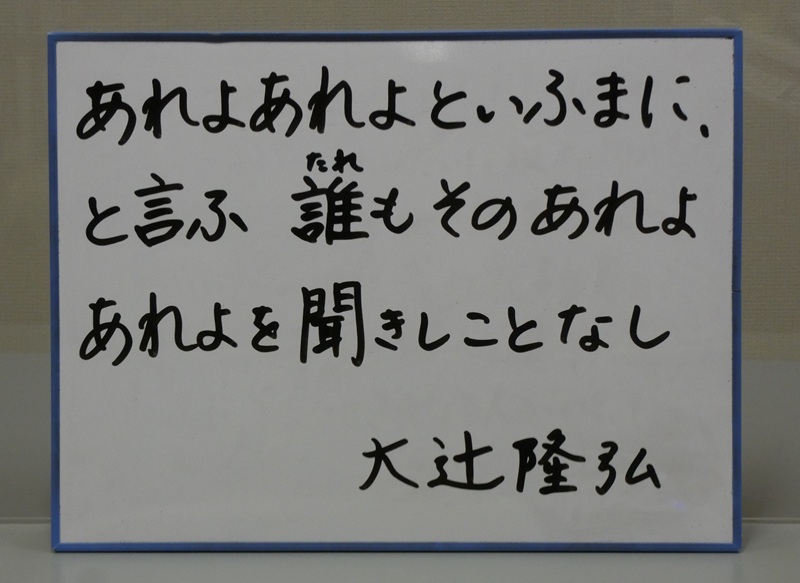 あれよあれよといふまに、
と言ふ 誰もそのあれよ
たれ
あれよを聞きしことなし
大辻隆弘